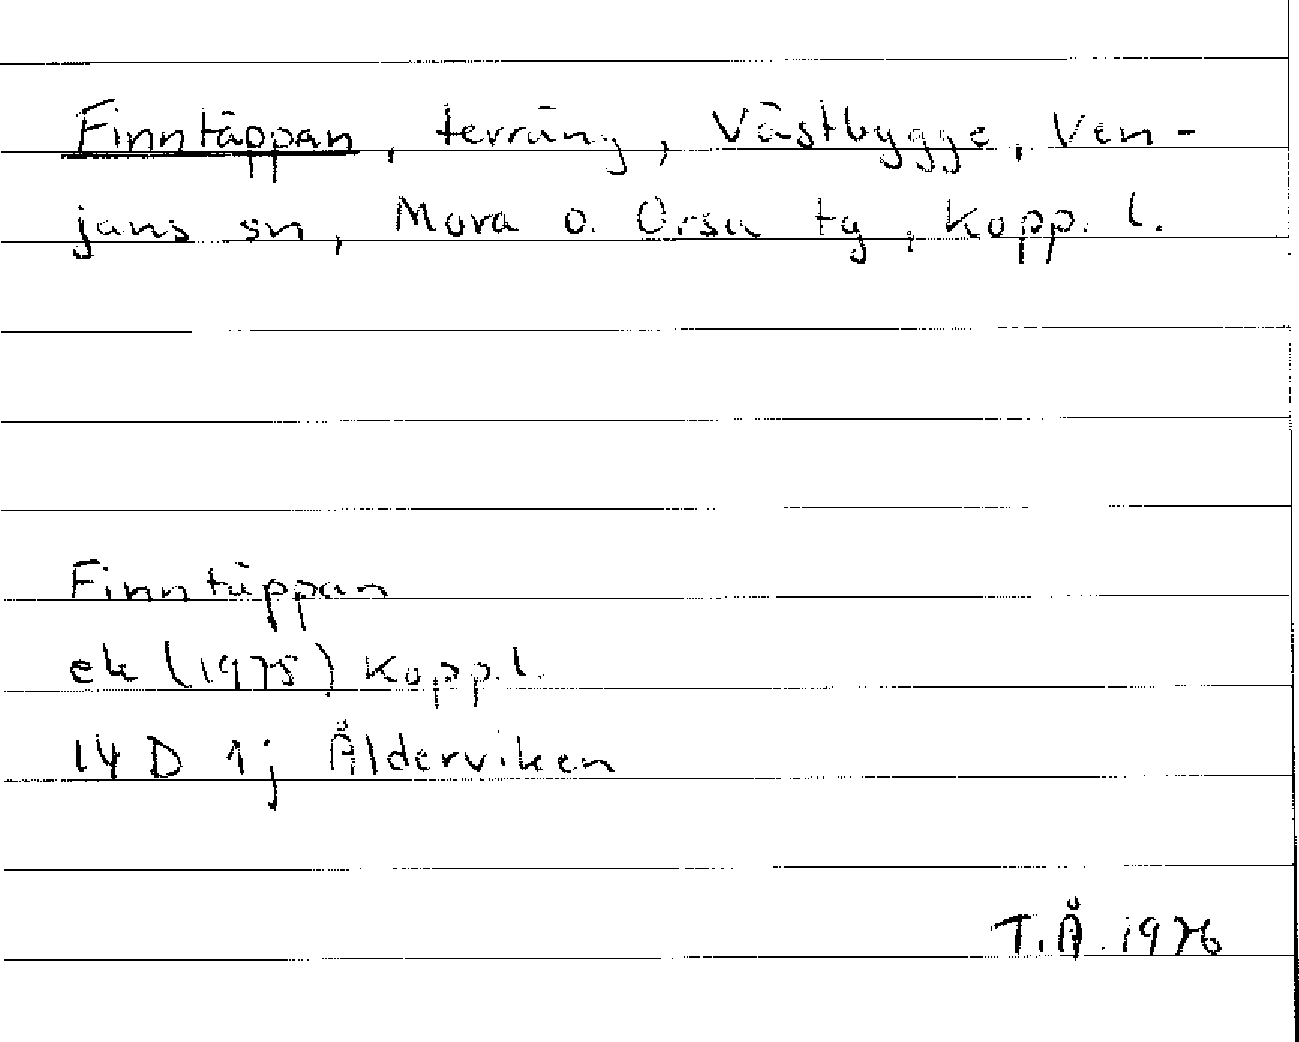 Finntäppan, terräng, Västbygge, Ven-
jans sn, Mora o. Orsa tg, Kopp. l.
Finntäppan
ek (1975) Kopp.l.
14 D 1j Ålderviken
T.Å. 1976